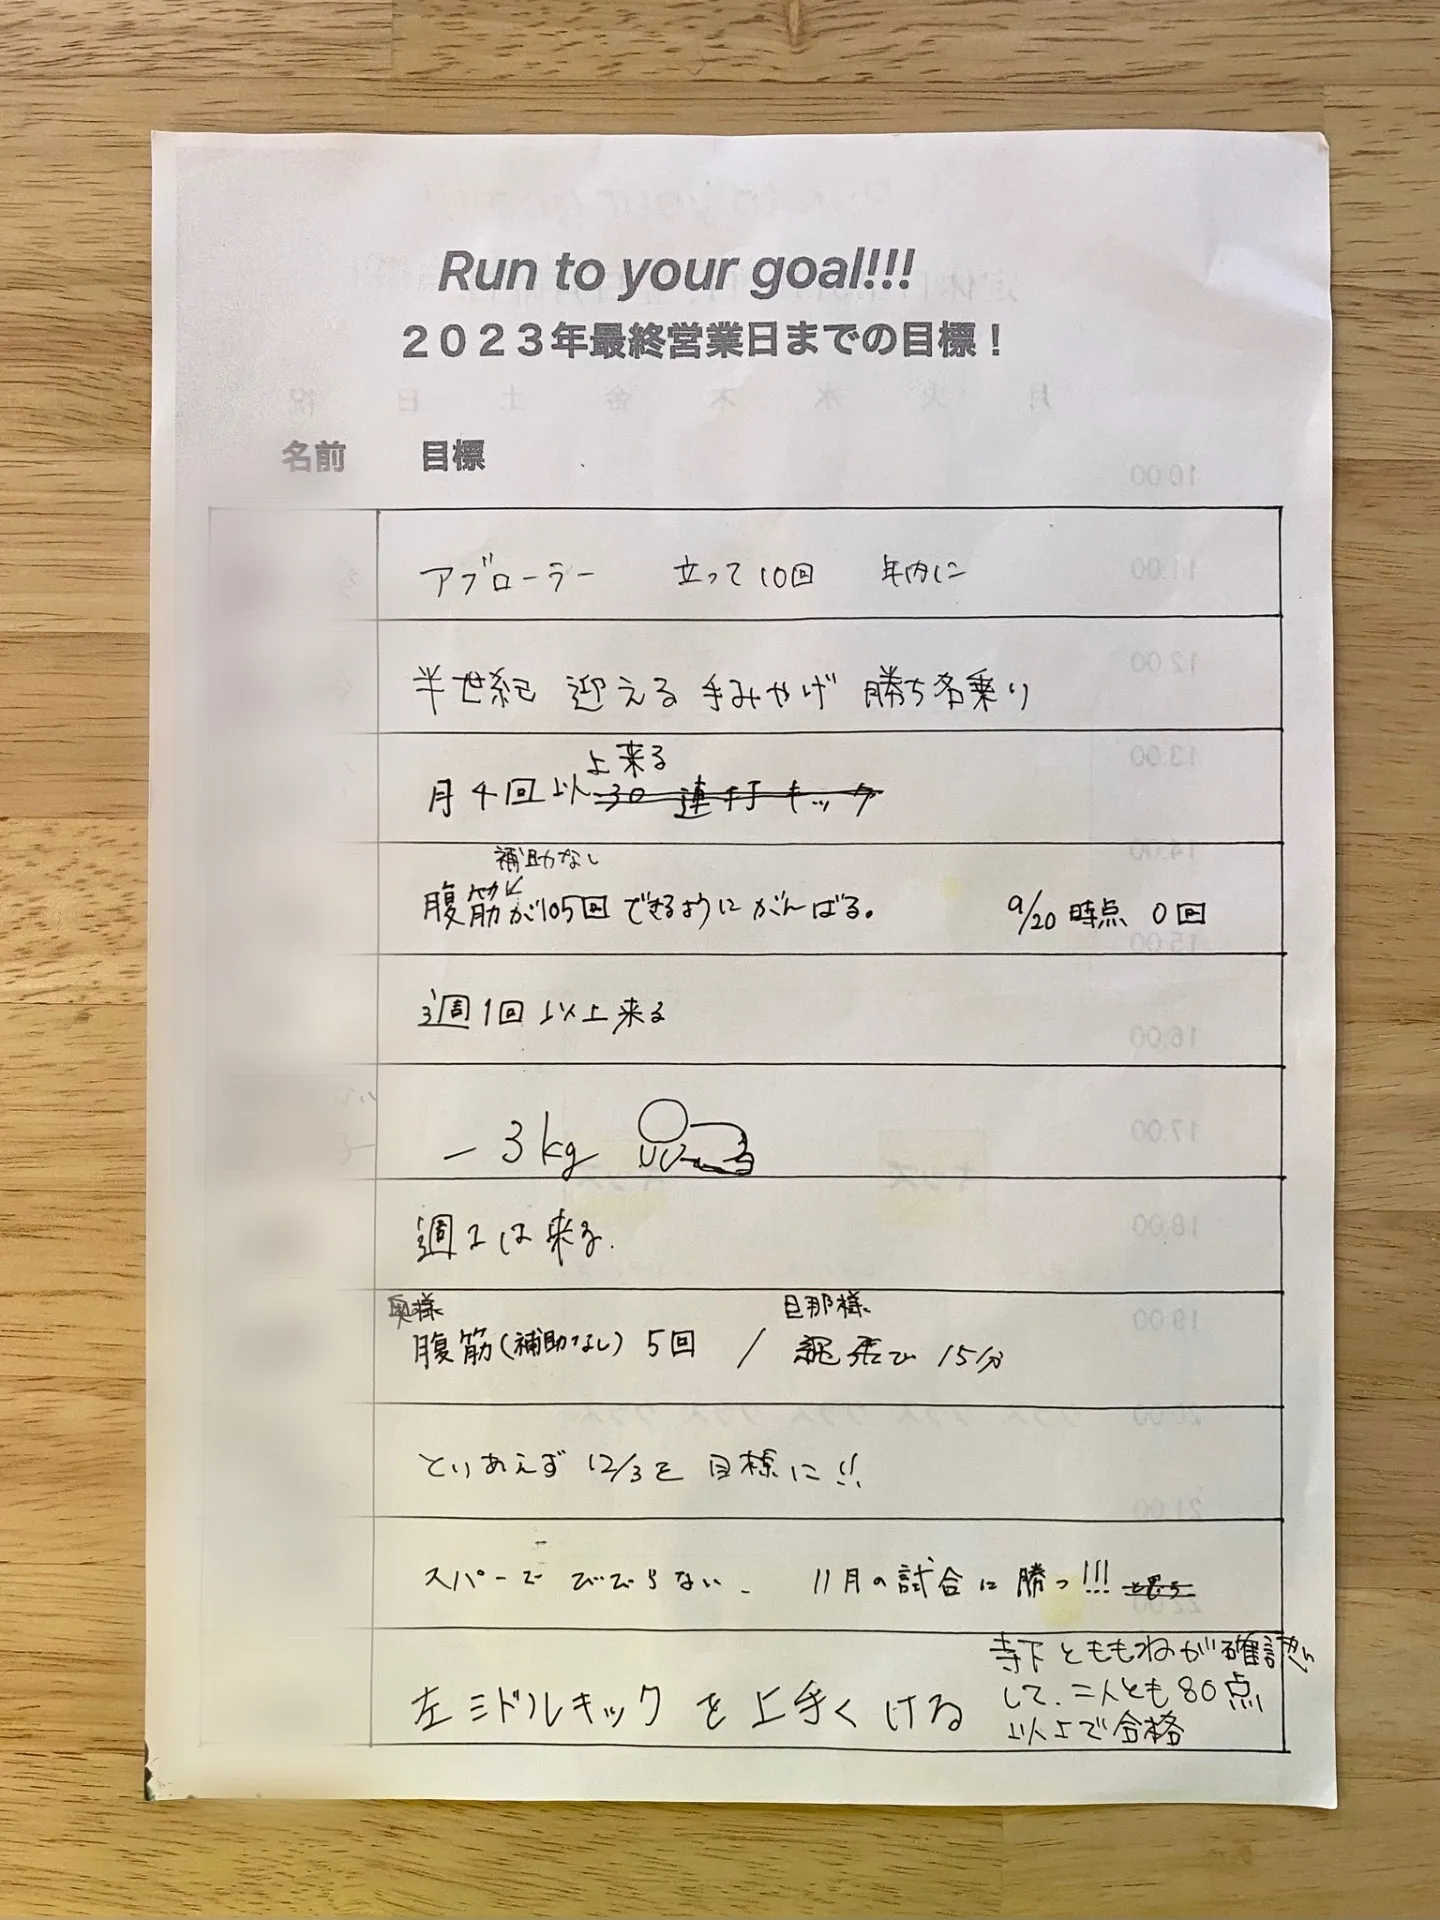 Run to your goal!!!
2023年最終営業日までの目標！
名前 目標
アブローラー 立って10回 年内に
半世紀 迎える 手みやげ 勝ち名乗り
上来る
月4回以 30 連打キック
補助なし
腹筋が105回できるようにがんばる。 9/20時点 0回
週1回以上来る
-3kg
週2は来る.
奥様 旦那様
腹筋(補助なし) 5回 / 縄飛び 15分
とりあえず 12/3を目標に!!
スパーでびびらない. 11月の試合に勝つ!!!
左ミドルキックを上手くける
寺下とももねが確認
して、二人とも80点
以上で合格
月 火 水 木 金 土 日 祝
10:00
11:00
12:00
13:00
14:00
15:00
16:00
17:00
キッズ キッズ
18:00
19:00
20:00
21:00
22:00